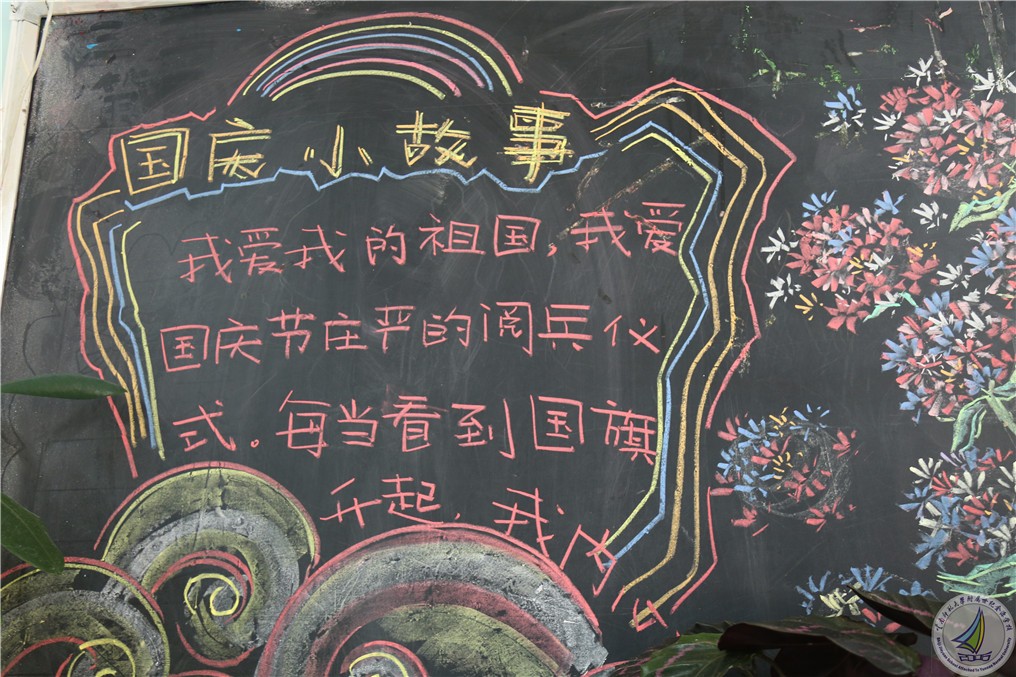 国庆小故事
我爱我的祖国,我爱
国庆节庄严的阅兵仪
式。每当看到国旗
升起,我